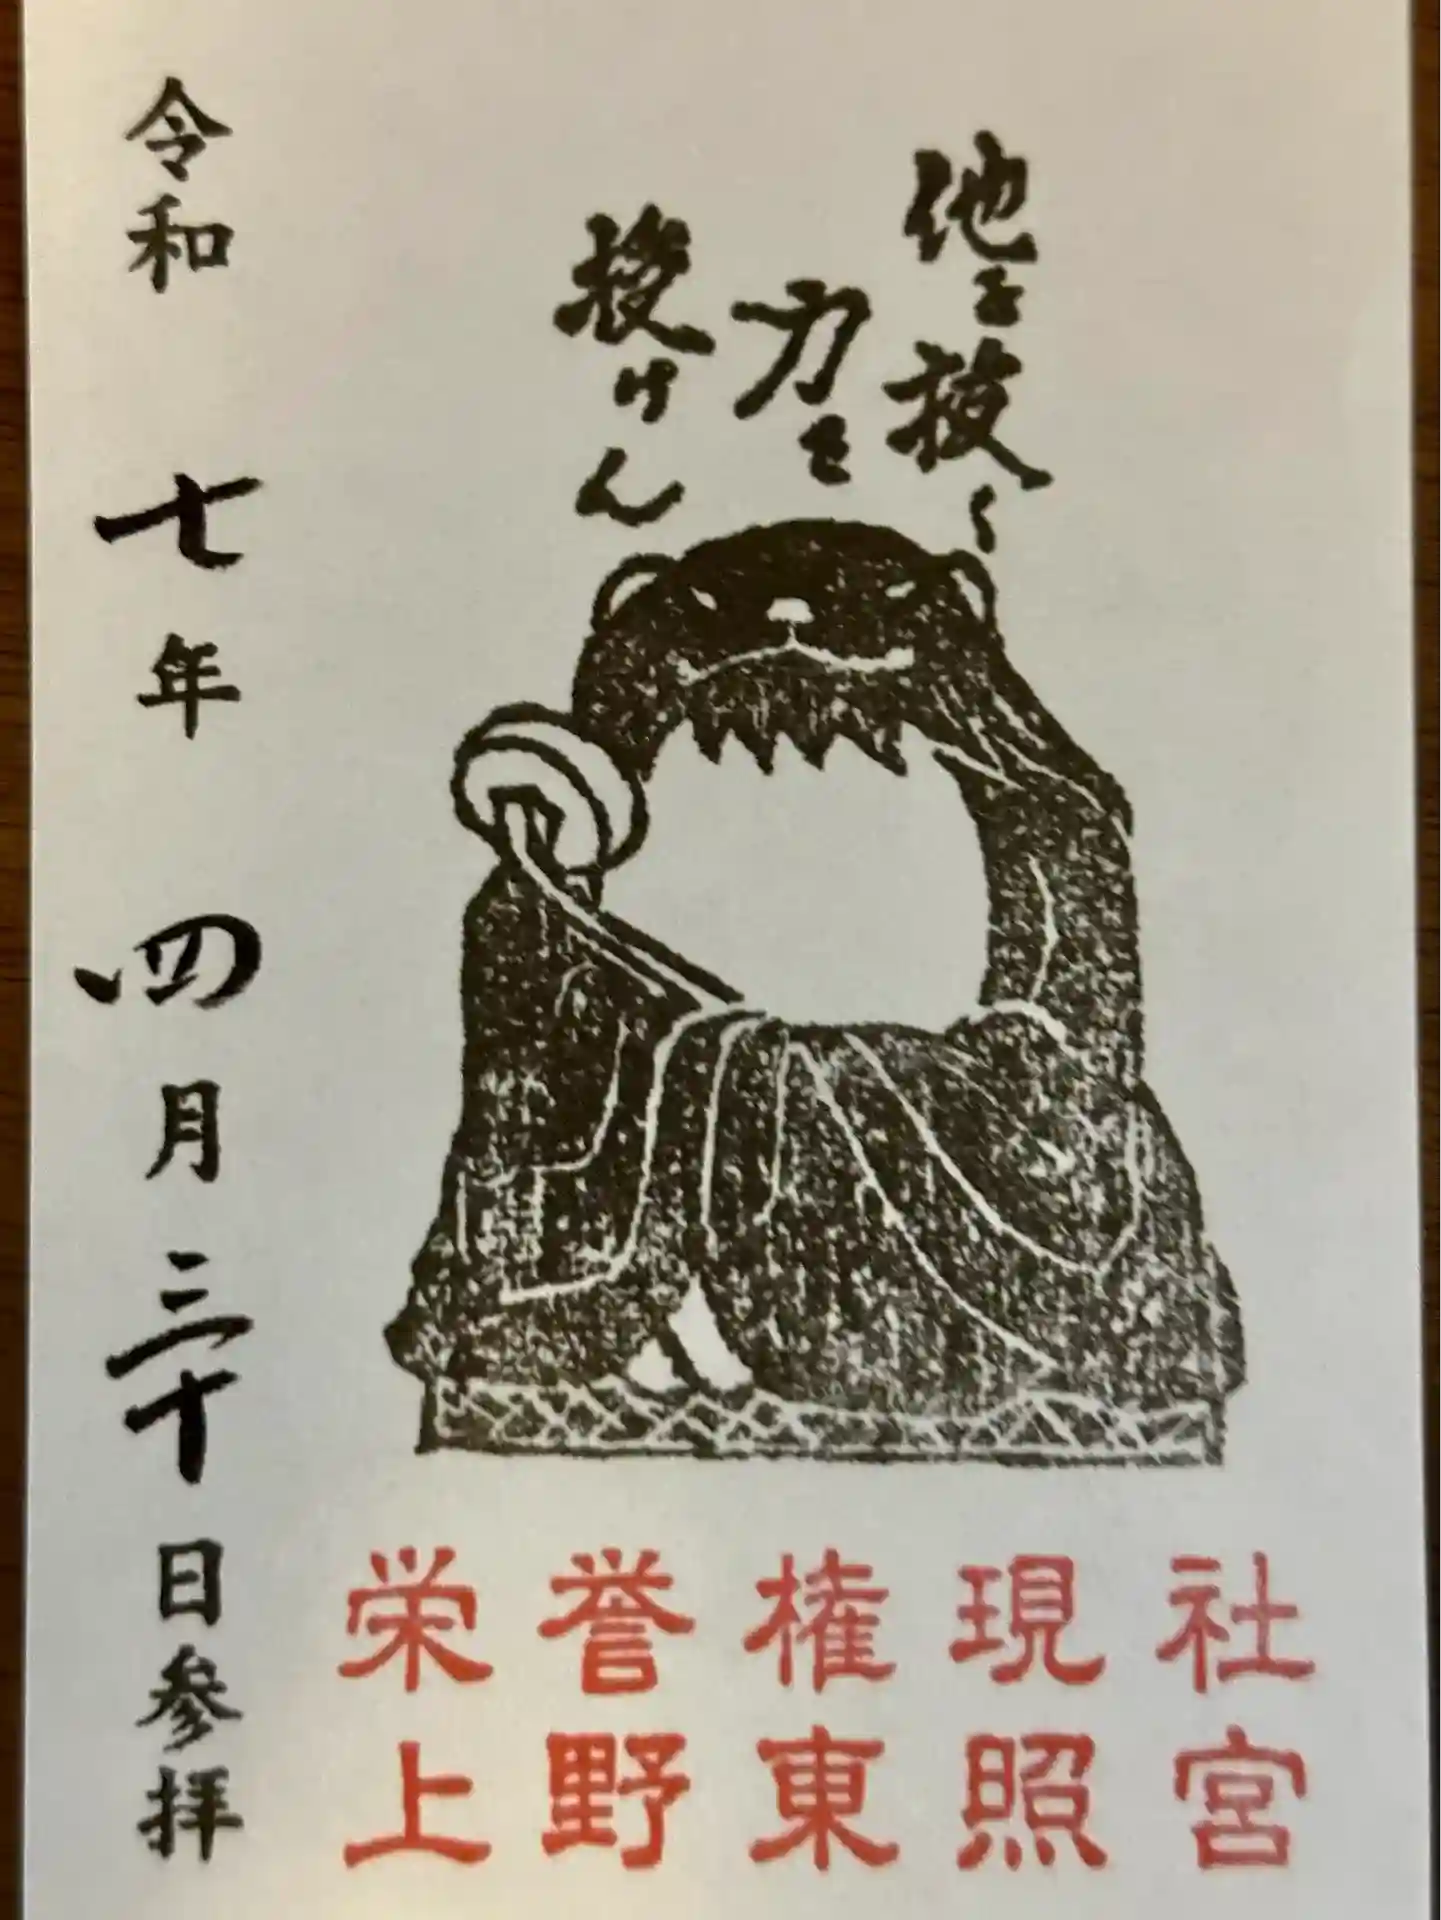 他を抜く
力を
授けん
令和 七年 四月 三十日参拝
栄誉権現社
上野東照宮